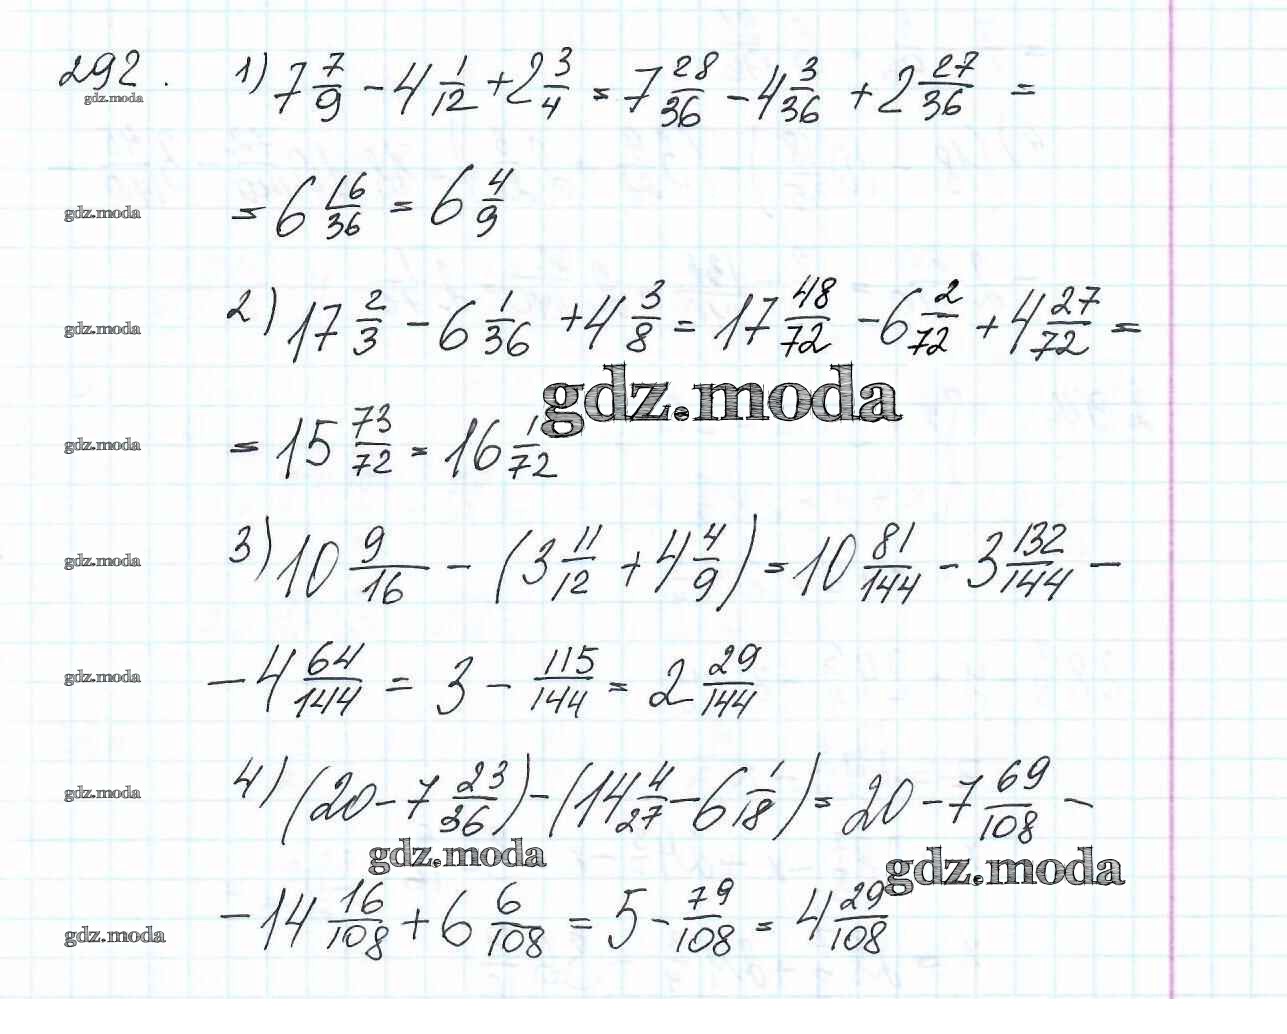 292. 1) 7 7/9 - 4 1/12 + 2 3/4 = 7 28/36 - 4 3/36 + 2 27/36 =
gdz.moda
gdz.moda = 6 16/36 = 6 4/9
gdz.moda 2) 17 2/3 - 6 1/36 + 4 3/8 = 17 48/72 - 6 2/72 + 4 27/72 =
gdz.moda
gdz.moda = 15 73/72 = 16 1/72
gdz.moda 3) 10 9/16 - (3 11/12 + 4 4/9) = 10 81/144 - 3 132/144 -
gdz.moda - 4 64/144 = 3 - 115/144 = 2 29/144
gdz.moda 4) (20 - 7 23/36) - (14 4/27 - 6 1/18) = 20 - 7 69/108 -
gdz.moda gdz.moda
gdz.moda - 14 16/108 + 6 6/108 = 5 - 79/108 = 4 29/108